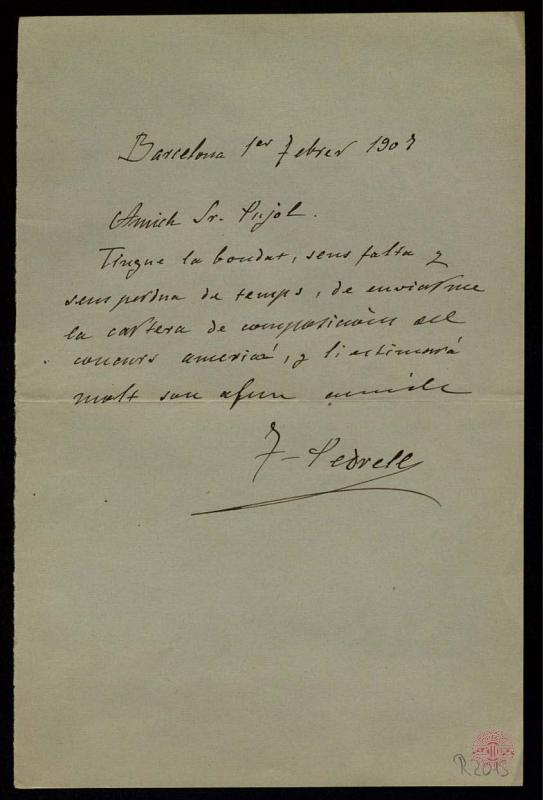 Barcelona 1er Febrer 1907
Amich Sr. Pujol.
Tingue la bondat, sens falta y
sens perdua de temps, de enviarme
la cartera de composicions del
concurs americá, y li estimará
molt son afm amich
F. Pedrell
R2015